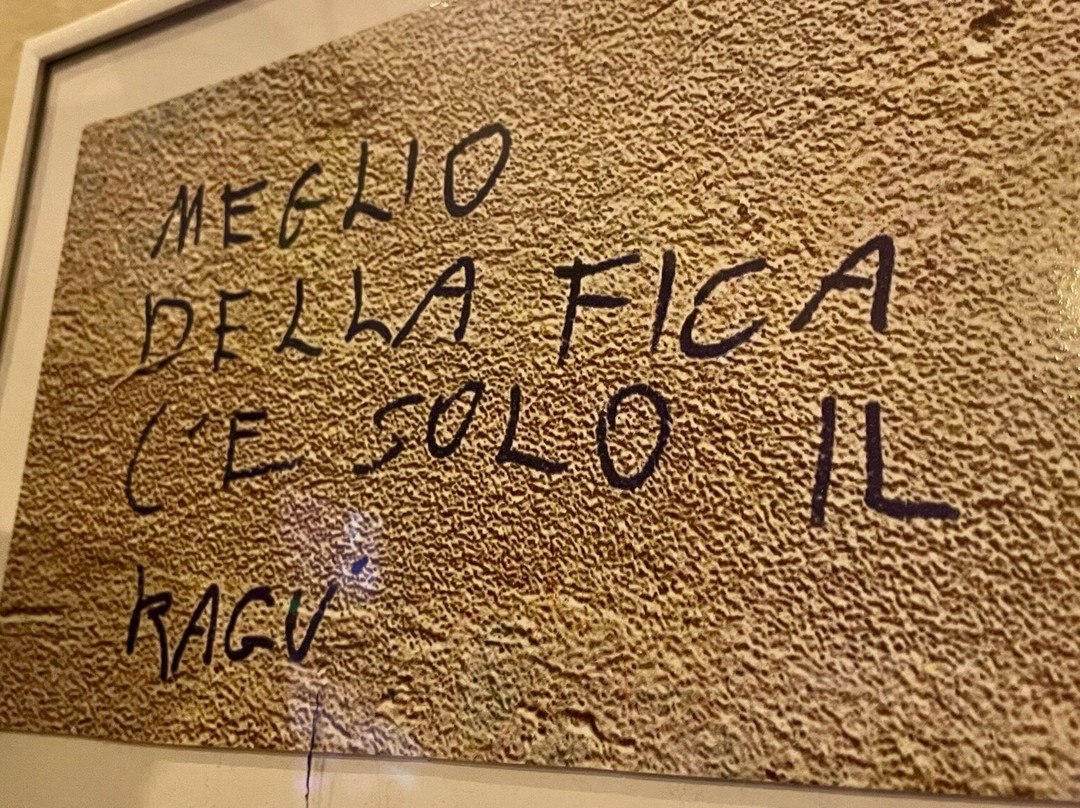 MEGLIO
DELLA FICA
C'E SOLO IL
RAGU'